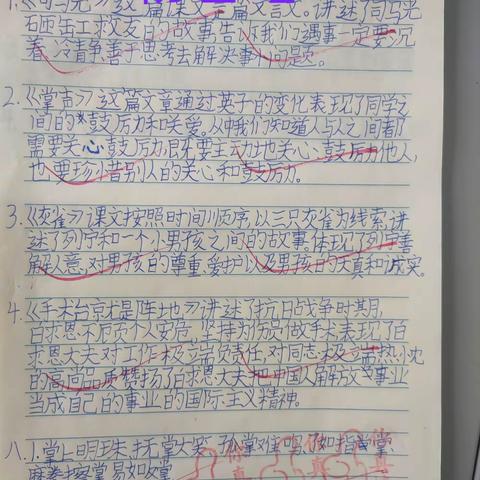 1.《司马光》这篇课文是篇文言文。讲述了司马光
石砸缸工救友的故事告诉我们遇事一定要沉
着、冷静善于思考去解决事小问题。
2.《掌声》这篇文章通过英子的变化表现了同学之
间的鼓厉力和关爱。从中我们知道人与人之间都
需要关心鼓厉力,既要主动地关心、鼓厉力他人,
也要珍惜别人的关心和鼓厉力。
3.《灰雀》课文按照时间顺序,以三只灰雀为线索,讲
述了列宁和一个小男孩之间的故事,体现了列宁善
解人意、对男孩的尊重、爱护以及男孩的天真和诚实。
4.《手术台就是阵地》讲述了抗日战争时期,
白求恩不顾个人安危,坚持为伤员做手术表现了白
求恩大夫对工作极端负责任,对同志极端热忱
的高尚品质赞扬了白求恩大夫把中国人解放事业
当成自己的事业的国际主义精神。
八、1.掌上明珠、抚掌大笑、孤掌难鸣、了如指掌、
摩拳擦掌、易如反掌
你真
你真